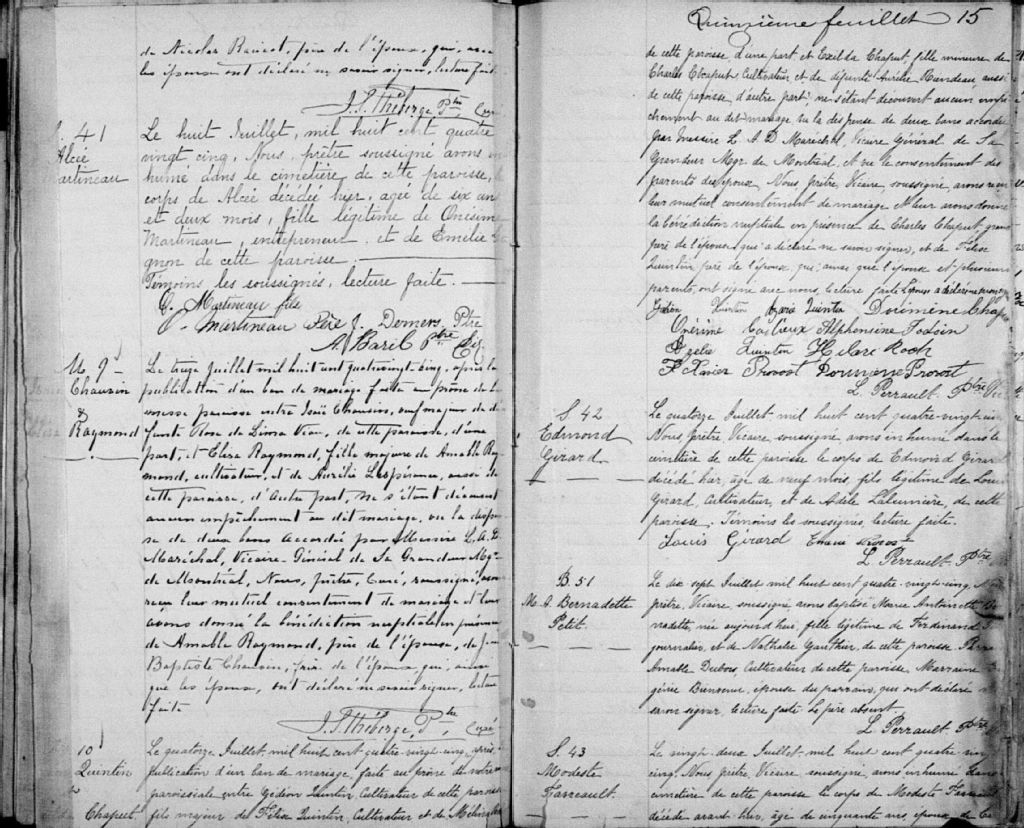 de Nicolas Racicot, père de l'époux, qui, avec
les époux ont déclaré ne savoir signer, lecture faite.
J. S. Théberge Ptre Curé
S. 41
Alcée
Martineau
Le huit Juillet, mil huit cent quatre
vingt cinq, Nous, prêtre soussigné avons in
humé dans le cimetière de cette paroisse, le
corps de Alcée décédée hier, agée de six ans
et deux mois, fille légitime de Onésime
Martineau, entrepreneur, et de Emélie Ga
gnon de cette paroisse.
Témoins les soussignés, lecture faite.
C. Martineau fils
O. Martineau Père J. Demers Ptre
A. Baril Ptre
M 9
Chausin
&
Raymond
Le treize Juillet mil huit cent quatrevingt cinq, après la
publication d'un ban de mariage faite au prône de la
messe paroisse entre Chausin, veuf majeur de dé
funte Rose de Lima Viau, de cette paroisse, d'une
part; et Clara Raymond, fille majeure de Amable Ray
mond, cultivateur, et de Aurélie Lespérance, aussi de
cette paroisse, d'autre part, ne s'étant découvert
aucun empêchement au dit mariage, vu la dispen
se de deux bans accordée par Messire L. A. D.
Maréchal, Vicaire-Général de Sa Grandeur Mgr.
de Montréal, Nous, Prêtre, Curé, soussigné, avons
reçu leur mutuel consentement de mariage et leur
avons donné la bénédiction nuptiale en présence
de Amable Raymond, père de l'épouse, de
Baptiste Chausin, de l'époux, qui, ainsi
que les époux, ont déclaré ne savoir signer, lecture
faite
J. S. Théberge, Ptre Curé
10
Quintin
Chaput
Le quatorze Juillet mil huit cent quatre-vingt-cinq, après
publication d'un ban de mariage, faite au prône de notre
paroissiale entre Gédéon Quintin, Cultivateur de cette paroisse
fils majeur de Félix Quintin, Cultivateur et de
Quinzième feuillet 15
de cette paroisse d'une part, et Exilda Chaput, fille mineure de
Charles Chaput Cultivateur et de défunte Aurélie Riendeau, aussi
de cette paroisse d'autre part; ne s'étant découvert aucun empê
chement au dit mariage vu la dispense de deux bans accordée
par Messire L. A. D Maréchal, Vicaire Général de Sa
Grandeur Mgr. de Montréal, et vu le consentement des
parents des époux, Nous prêtre, Vicaire soussigné, avons reçu
leur mutuel consentement de mariage et leur avons donné
la bénédiction nuptiale en présence de Charles Chaput, grand
père de l'épouse qui a déclaré ne savoir signer, et de Félix
Quintin père de l'époux, qui, ainsi que l'époux et plusieurs
parents, ont signé avec nous, lecture faite L'épouse a déclaré ne savoir
Gédéon Quintin Quintin Doumene Chaput
Onérine Alphonsine
Quintin Hilare Roch
F. Xavier Provost Provost
L. Perrault, Ptre Vic
S. 42
Edmond
Girard
Le quatorze Juillet mil huit cent quatre-vingt-cinq
Nous, prêtre, Vicaire, soussigné, avons inhumé dans le
cimetière de cette paroisse le corps de Edmond Girard
décédé hier, âgé de neuf mois, fils légitime de Louis
Girard, Cultivateur, et de Adèle Lalumière, de cette
paroisse. Témoins les soussignés, lecture faite.
Louis Girard
L Perrault Ptre
B. 51
M. A. Bernadette
Petit
Le dix-sept Juillet mil huit cent quatre-vingt-cinq, Nous
prêtre, Vicaire, soussigné, avons baptisé Marie Antoinette Ber
nadette, née aujourd'hui, fille légitime de Ferdinand
journalier, et de Nathalie Gauthier, de cette paroisse Parrain
Amable Dubois, Cultivateur de cette paroisse Marraine
génie Bienvenue, épouse du parrain, qui ont déclaré
savoir signer, lecture faite le père absent.
L Perrault Ptre
S. 43
Modeste
Favreault.
Le vingt-deux Juillet mil huit cent quatre vingt
cinq, Nous prêtre Vicaire soussigné, avons inhumé dans
cimetière de cette paroisse le corps de Modeste
décédé avant-hier, âgé de cinquante ans, époux de